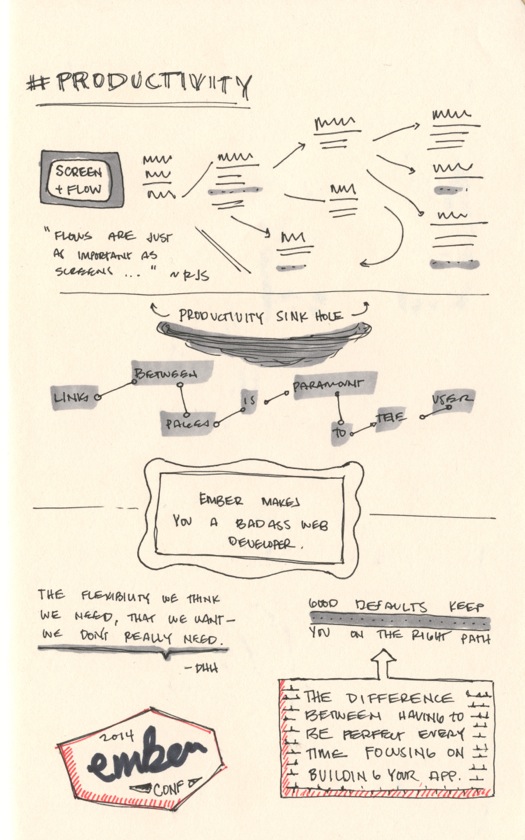 #PRODUCTIVITY
SCREEN
+ FLOW
"FLOWS ARE JUST
AS IMPORTANT AS
SCREENS ..." ~RJS
PRODUCTIVITY SINK HOLE
LINKS BETWEEN PAGES IS PARAMOUNT TO THE USER
EMBER MAKES
YOU A BADASS WEB
DEVELOPER.
THE FLEXIBILITY WE THINK
WE NEED, THAT WE WANT—
WE DON'T REALLY NEED.
-DHH
GOOD DEFAULTS KEEP
YOU ON THE RIGHT PATH
THE DIFFERENCE
BETWEEN HAVING TO
BE PERFECT EVERY
TIME FOCUSING ON
BUILDING YOUR APP.
2014
ember
CONF